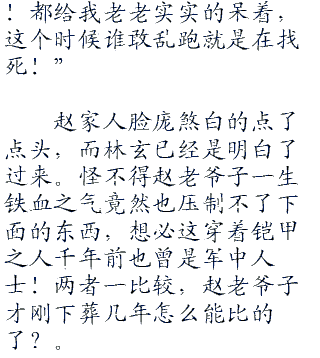 ！都给我老老实实的呆着，
这个时候谁敢乱跑就是在找
死！”
赵家人脸庞煞白的点了
点头，而林玄已经是明白了
过来。怪不得赵老爷子一生
铁血之气竟然也压制不了下
面的东西，想必这穿着铠甲
之人千年前也曾是军中人
士！两者一比较，赵老爷子
才刚下葬几年怎么能比的
了？。